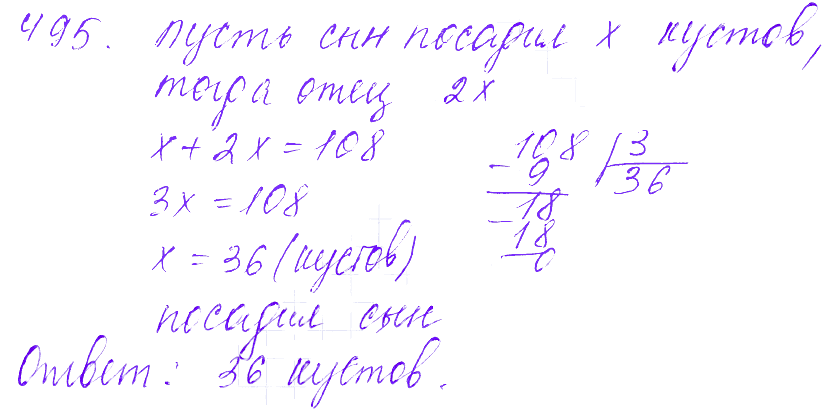 495. Пусть сын посадил x кустов,
тогда отец 2x
x + 2x = 108
3x = 108
x = 36 (кустов)
посадил сын
108 | 3
- 9 36
18
- 18
0
Ответ: 36 кустов.